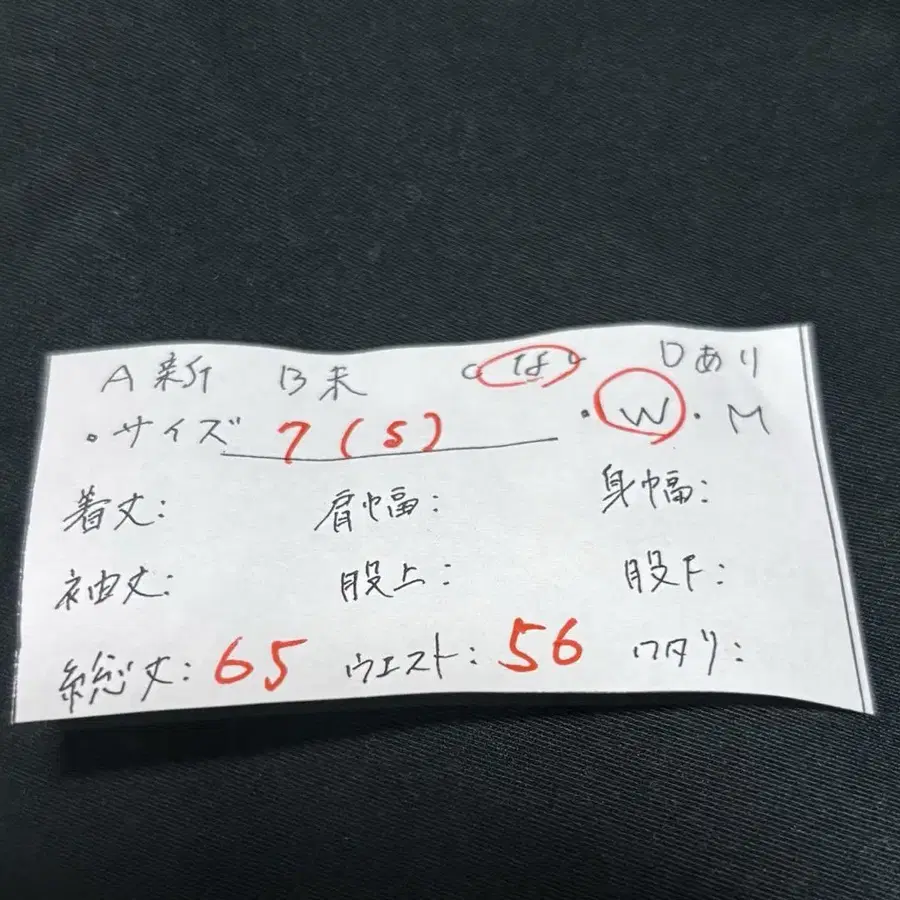 A 新 B 未 C なし D あり
・サイズ 7(S) ・W・M
着丈: 肩幅: 身幅:
袖丈: 股上: 股下:
総丈: 65 ウエスト: 56 ワタリ: